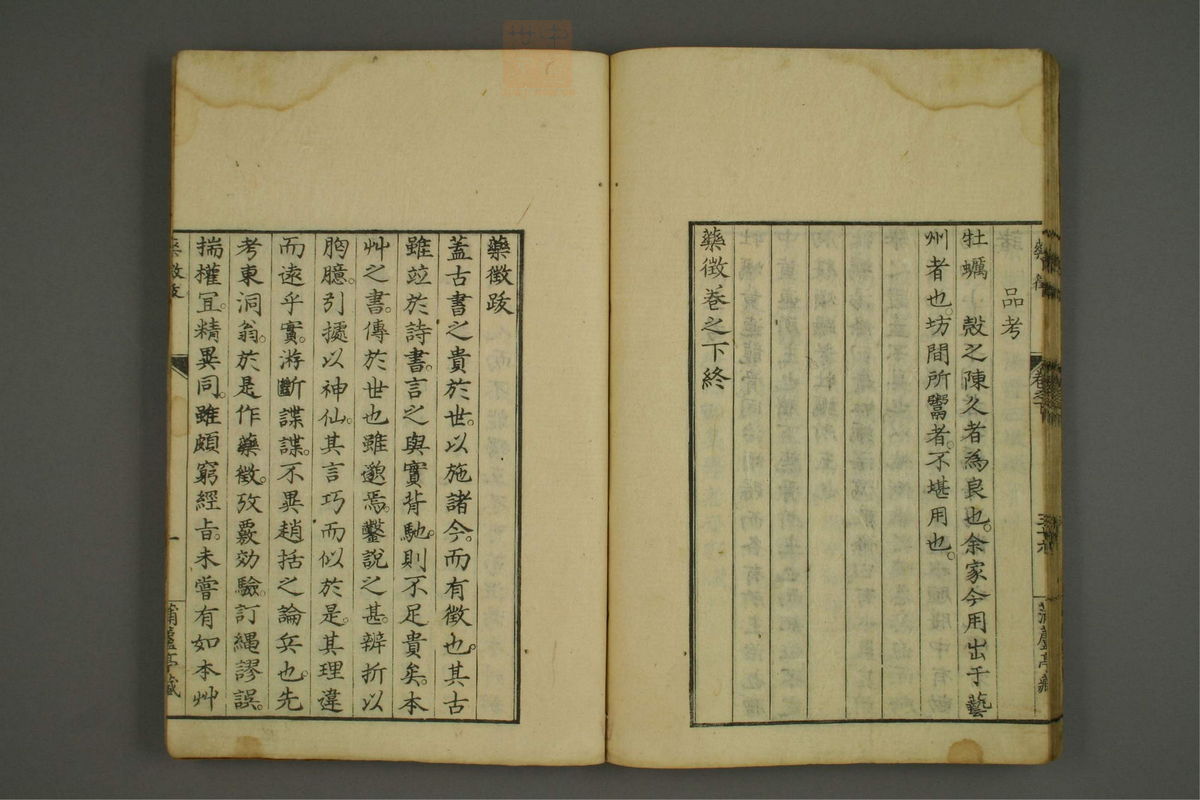 品考
牡蠣 殼之陳久者為良也。余家今用出于藝
州者也。坊間所鬻者。不堪用也。
藥徵卷之下終
藥徵跋
蓋古書之貴於世。以施諸今。而有徵也。其古
雖竝於詩書。言之與實背馳。則不足貴矣。本
艸之書。傳於世也雖邈焉。鑿說之甚。辨折以
胸臆。引據以神仙。其言巧而似於是。其理違
而遠乎實。游斷諜諜。不異趙括之論兵也。先
考東洞翁。於是作藥徵。攷覈効驗。訂繩謬誤。
揣權宜。精異同。雖頗窮經旨。未嘗有如本艸
藥徵跋
一
蒲蘆亭藏